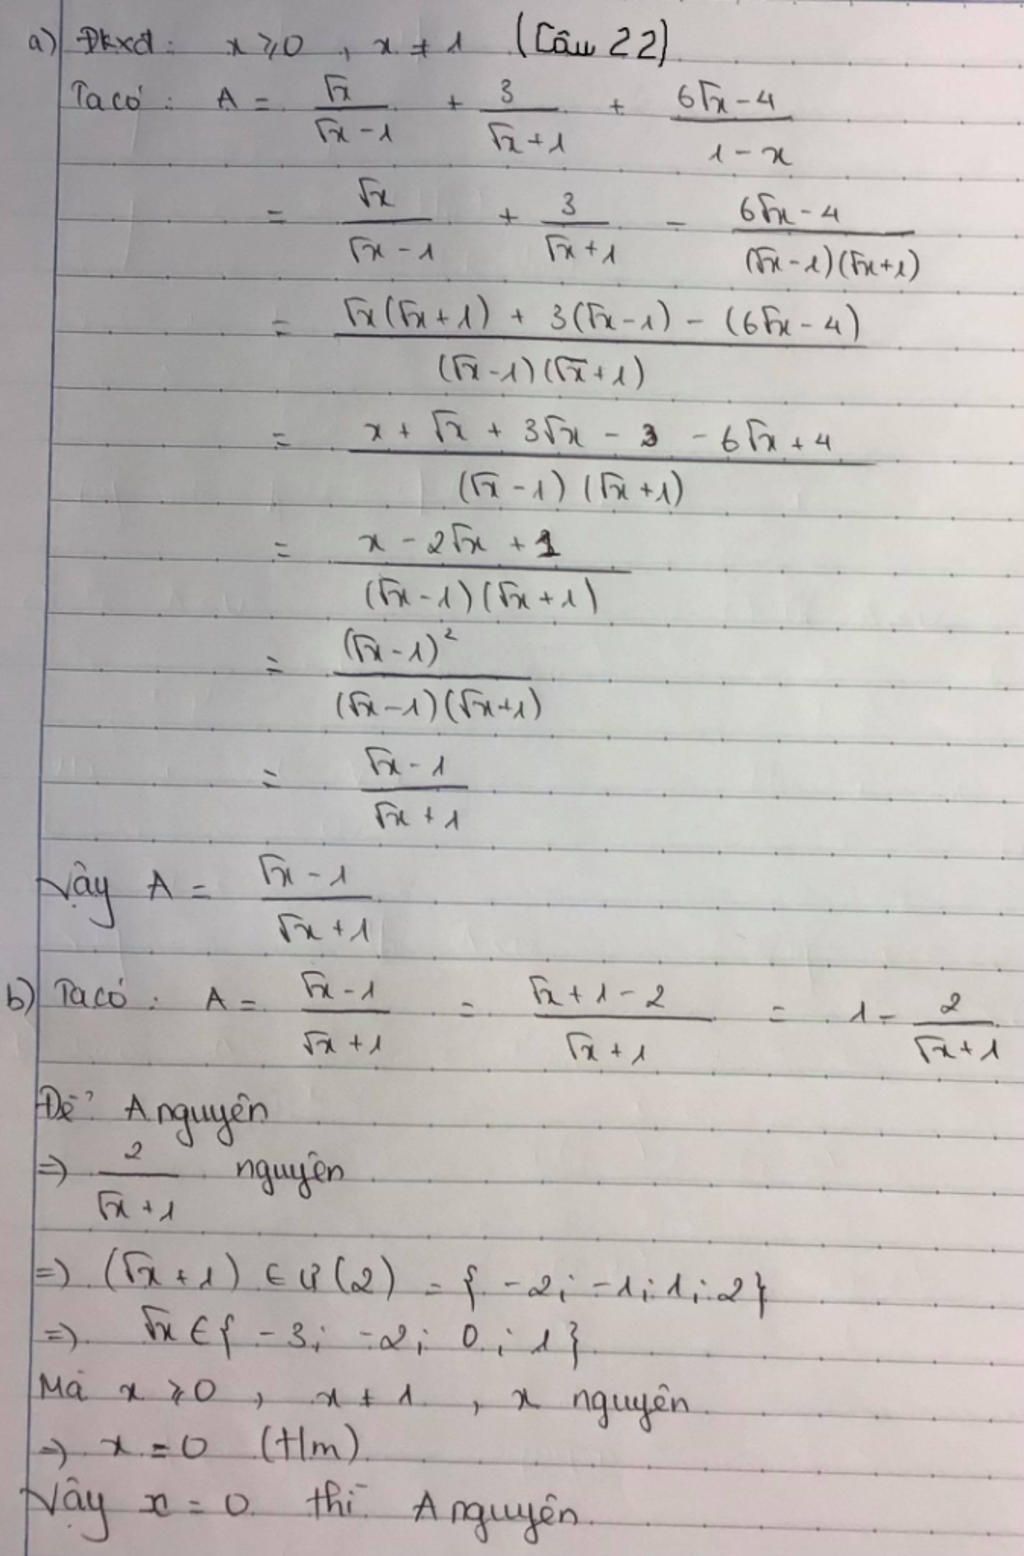 a) Đkxđ: x ⩾ 0 , x ≠ 1 (Câu 22)
Ta có : A = √x / (√x - 1) + 3 / (√x + 1) + (6√x - 4) / (1 - x)
= √x / (√x - 1) + 3 / (√x + 1) - (6√x - 4) / ((√x - 1)(√x + 1))
= (√x(√x + 1) + 3(√x - 1) - (6√x - 4)) / ((√x - 1)(√x + 1))
= (x + √x + 3√x - 3 - 6√x + 4) / ((√x - 1)(√x + 1))
= (x - 2√x + 1) / ((√x - 1)(√x + 1))
= (√x - 1)² / ((√x - 1)(√x + 1))
= (√x - 1) / (√x + 1)
Vậy A = (√x - 1) / (√x + 1)
b) Ta có : A = (√x - 1) / (√x + 1) = (√x + 1 - 2) / (√x + 1) = 1 - 2 / (√x + 1)
Để A nguyên
=> 2 / (√x + 1) nguyên
=> (√x + 1) ∈ Ư(2) = { -2 ; -1 ; 1 ; 2 }
=> √x ∈ { -3 ; -2 ; 0 ; 1 }
Mà x ⩾ 0 , x ≠ 1 , x nguyên
=> x = 0 (t/m)
Vậy x = 0 thì A nguyên.